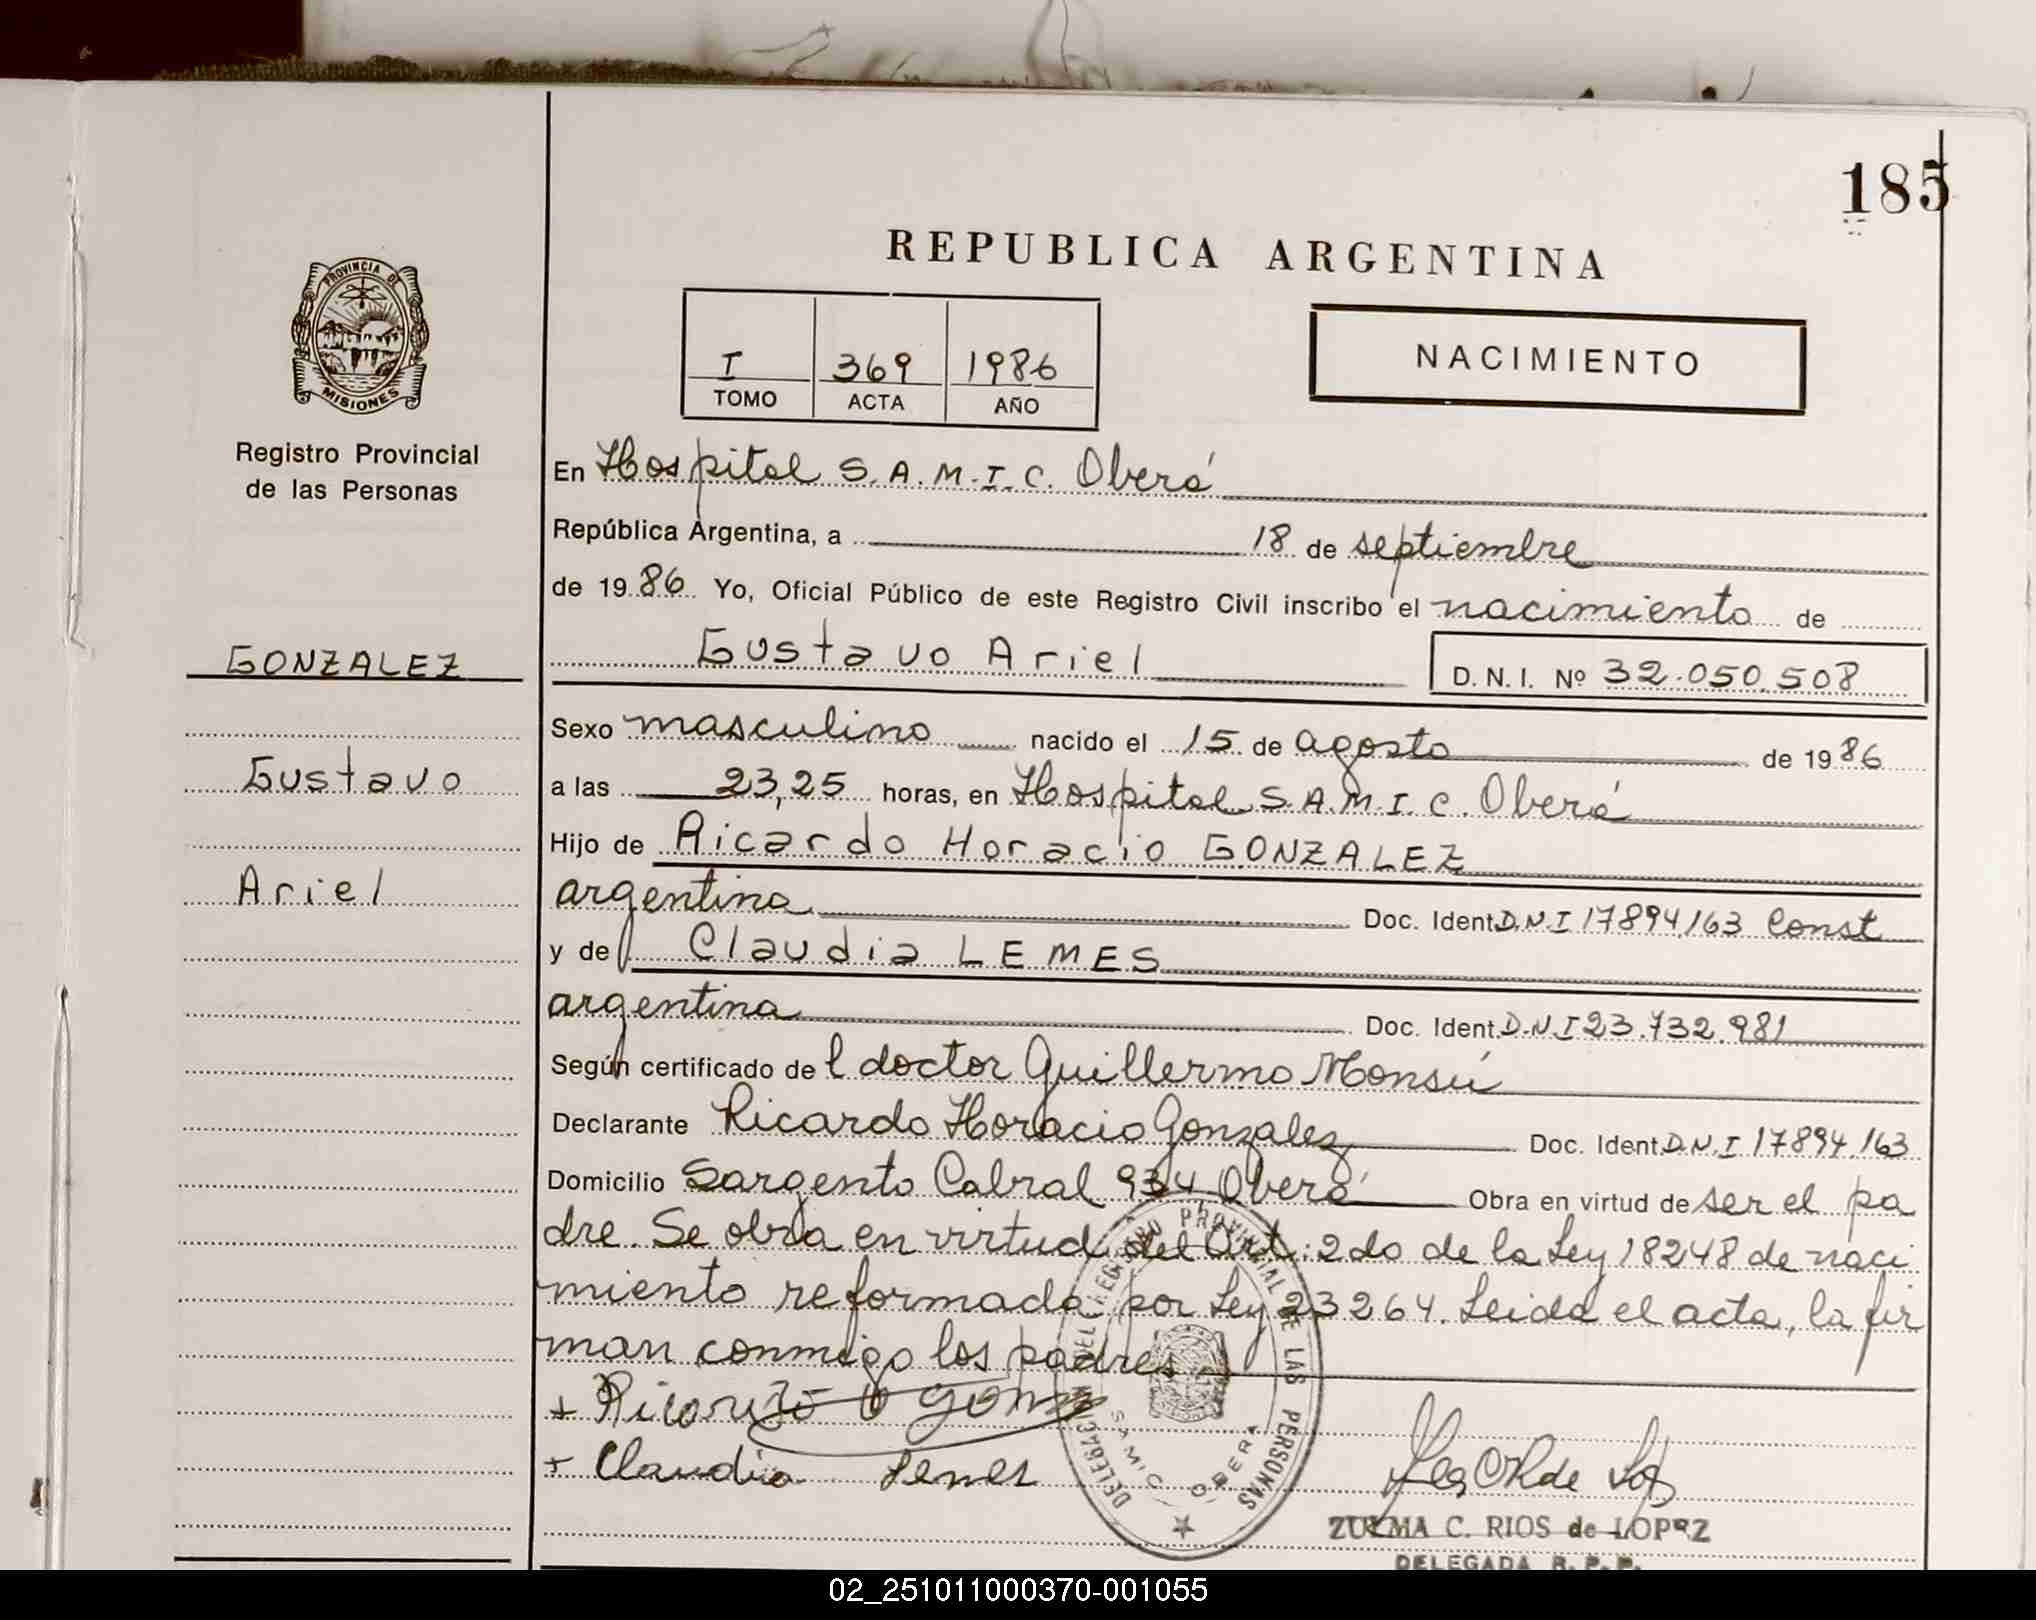 185
REPUBLICA ARGENTINA
PROVINCIA DE
MISIONES
Registro Provincial
de las Personas
I 369 1986
TOMO ACTA AÑO
NACIMIENTO
En Hospital S.A.M.I.C. Oberá
República Argentina, a 18 de septiembre
de 1986 Yo, Oficial Público de este Registro Civil inscribo el nacimiento de
GONZALEZ
Gustavo Ariel
D. N. I. Nº 32.050.508
Sexo masculino nacido el 15 de agosto de 1986
Gustavo
a las 23,25 horas, en Hospital S.A.M.I.C. Oberá
Hijo de Ricardo Horacio GONZALEZ
Ariel
argentina Doc. Ident. D.N.I 17894.163 Const
y de Claudia LEMES
argentina Doc. Ident. D.N.I 23.732.981
Según certificado del doctor Guillermo Monsú
Declarante Ricardo Horacio Gonzalez Doc. Ident. D.N.I 17894.163
Domicilio Sargento Cabral 934 Oberá Obra en virtud de ser el pa
dre. Se obra en virtud del Art. 2do de la Ley 18248 de naci
miento reformada por Ley 23264. Leida el acta, la fir
man conmigo los padres
+ Ricardo
+ Claudia Lemes
DELEGACION DEL REGISTRO PROVINCIAL DE LAS PERSONAS
SAMIC OBERA
ZULMA C. RIOS de LOPEZ
DELEGADA R. P. P.
02_251011000370-001055